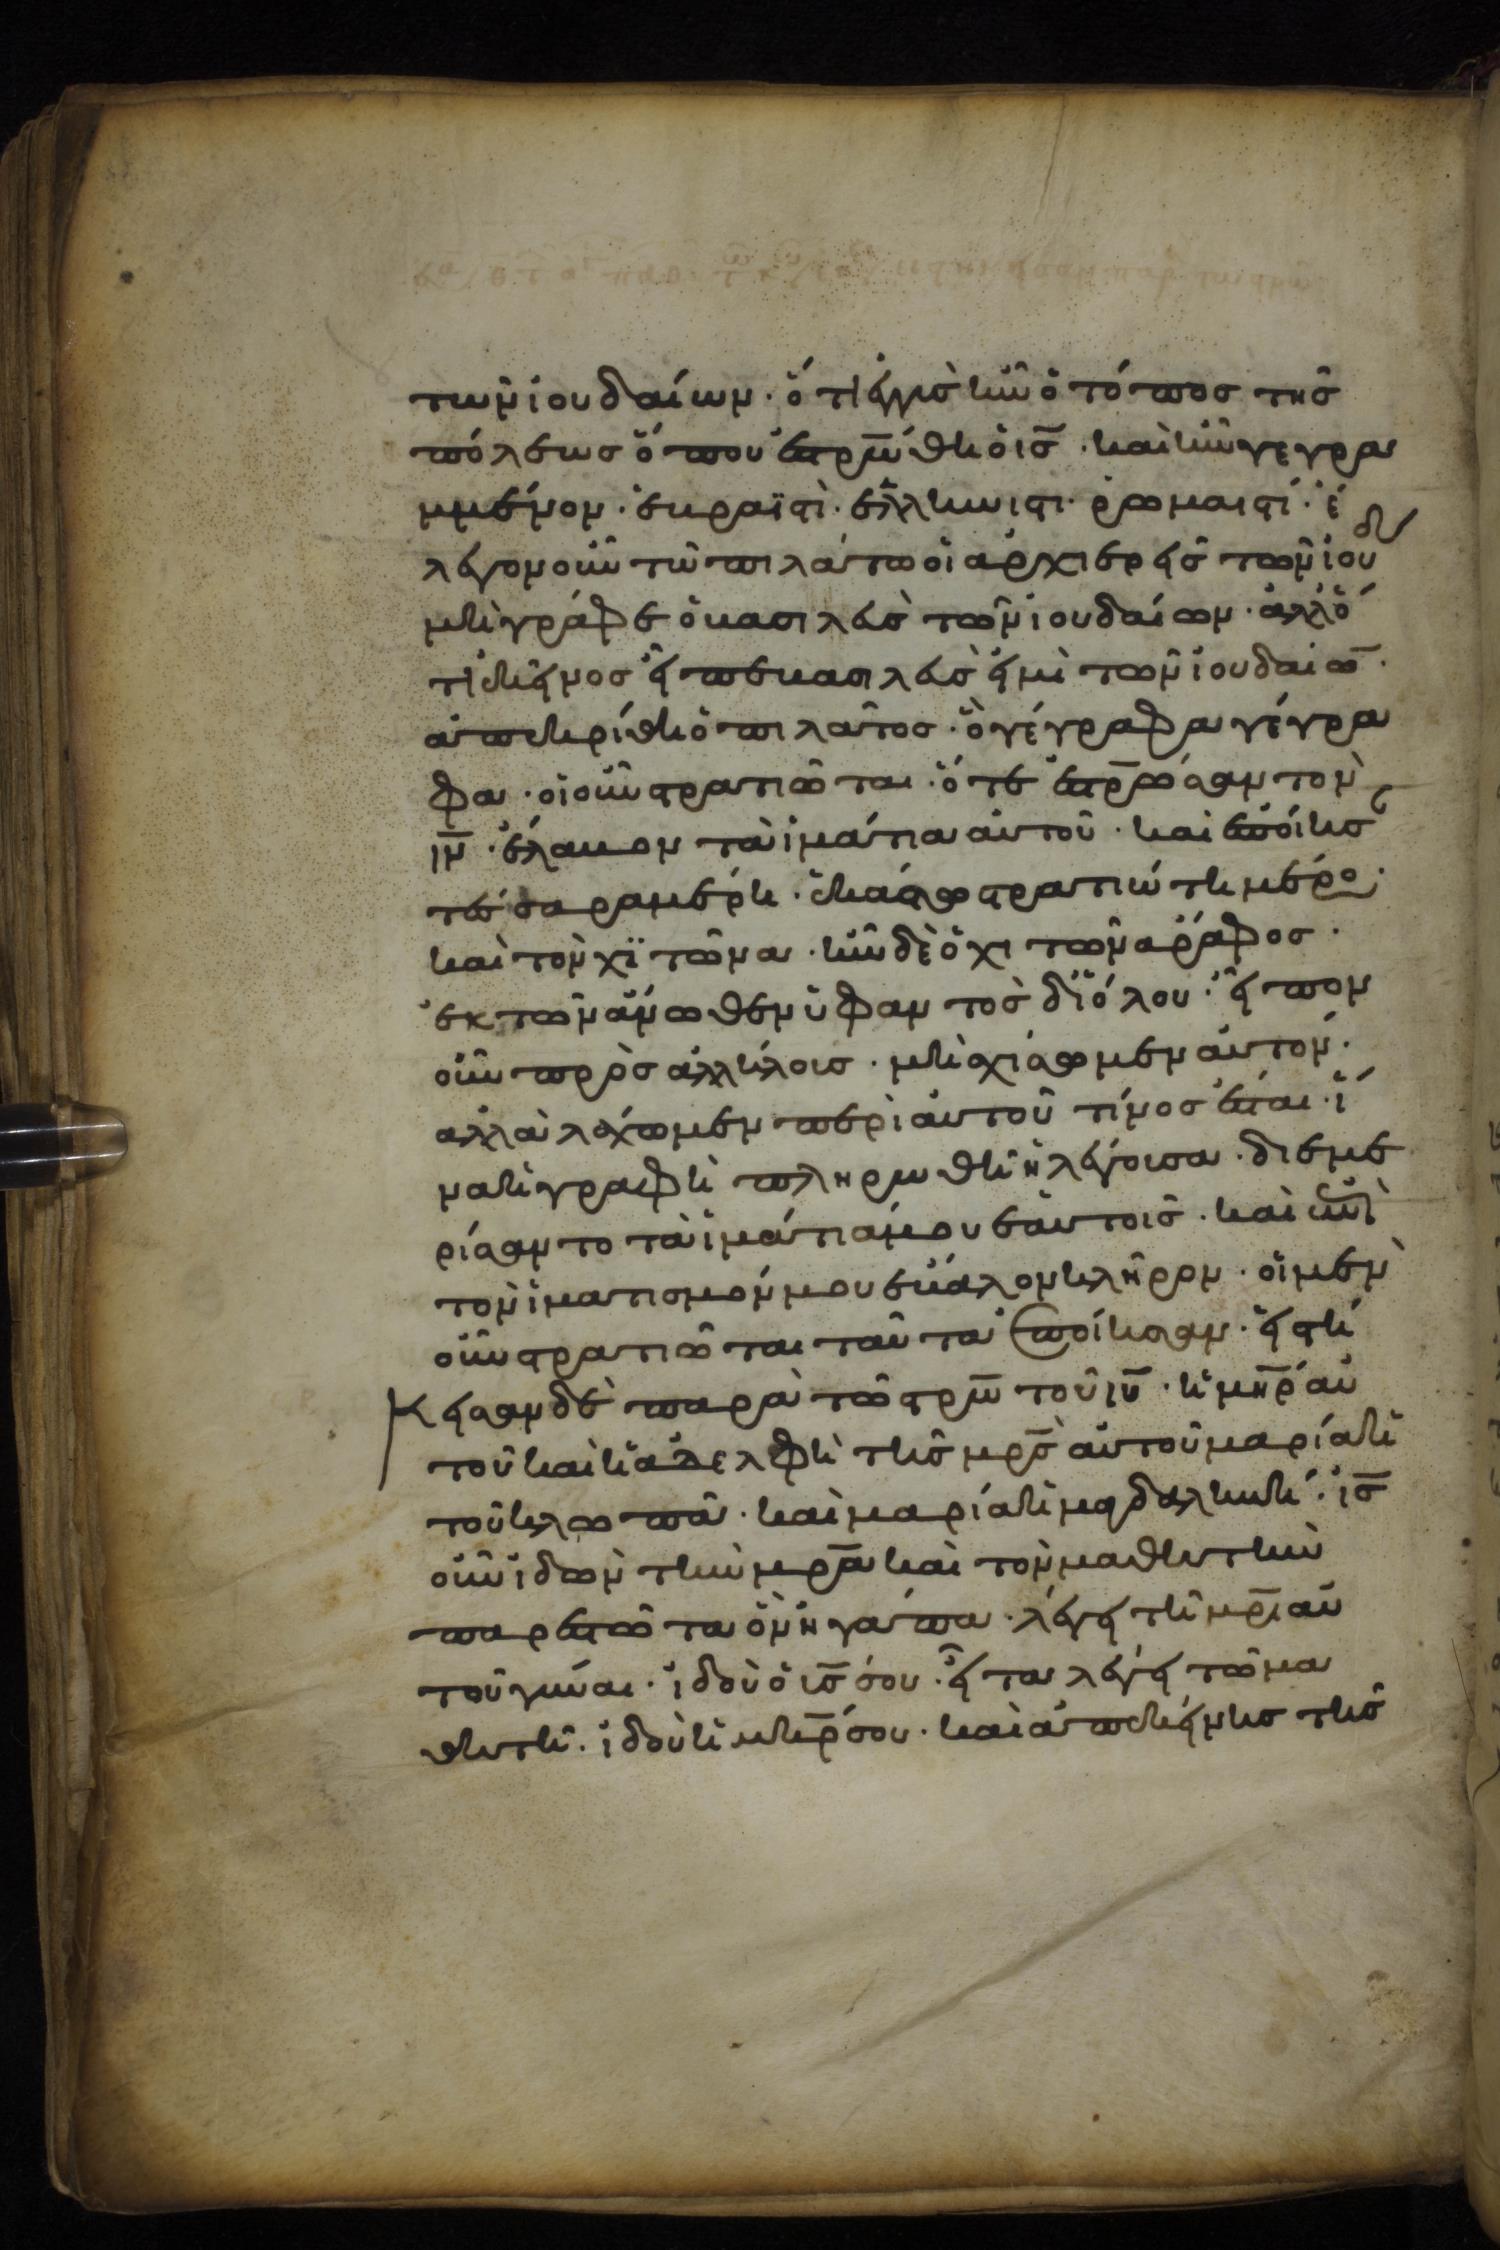 τῶν ἰουδαίων · ὅτι ἐγγὺσ ἦν ὁ τόποσ τῆσ
πόλεωσ ὅπου ἐστρ̅ώθη ὁ ισ̅ · καὶ ἦν γεγρα
μμένον · ἑβραϊστὶ · ἑλληνιστι · ρωμαιστί · ἔ
λεγον οὖν τῶ πιλάτω οἱ ἀρχιερεῖσ τῶν ἰουδ
μὴ γράφε ὁ βασιλεὺσ τῶν ἰουδαίων · ἀλλ ὅ
τι ἐκεῖνοσ εἶπε βασιλεὺσ εἰμὶ τῶν ἰουδαίω̅ ·
ἀπεκρίθη ὁ πιλᾶτοσ · ὃ γέγραφα γέγρα
φα · οἱ οὖν στρατιῶται · ὅτε ἐστρ̅ωσαν τὸν
ιν̅ · ἔλαβον τὰ ἱμάτια αὐτοῦ · καὶ ἐποίησ
τέσσαρα μέρη · ἑκάστω στρατιώτη μέρο ·
καὶ τὸν χϊτῶνα · ἦν δὲ ὁ χιτῶν ἄραφοσ ·
ἐκ τῶν ἄνωθεν ὑφαντὸσ δϊόλου · εἶπον
οὖν πρὸσ ἀλλήλοισ · μὴ σχίσωμεν αὐτόν ·
ἀλλὰ λάχωμεν περὶ αὐτοῦ τίνοσ ἔσται · ἵ
να ἡ γραφὴ πληρωθῆ ἡ λέγοισα · διεμε
ρίσαντο τὰ ἱμάτιά μου ἑαυτοῖσ · καὶ ἐπὶ
τὸν ἱματισμόν μου ἔβαλον κλῆρον · οἱ μὲν
οὖν στρατιῶται ταῦτα ἐποίησαν · εἱστή
κεισαν δὲ παρὰ τῶ στρ̅ω τοῦ ιυ̅ · ἡ μη̅ρ αὐ
τοῦ καὶ ἡ ἀδελφὴ τῆσ μρ̅σ αὐτοῦ μαρία ἡ
τοῦ κλωπᾶ · καὶ μαρία ἡ μαγδαληνή · ισ̅
οὖν ἰδὼν τὴν μρ̅α καὶ τὸν μαθητὴν
παρεστῶτα ὃν ἠγάπα · λέγει τῆ μρ̅ι αὐ
τοῦ γύναι · ἰδοὺ ὁ υσ̅ σου · εἶτα λέγει τῶ μα
θητῆ · ἰδοὺ ἡ μηρ̅ σου · καὶ ἀπεκείνησ τῆσ